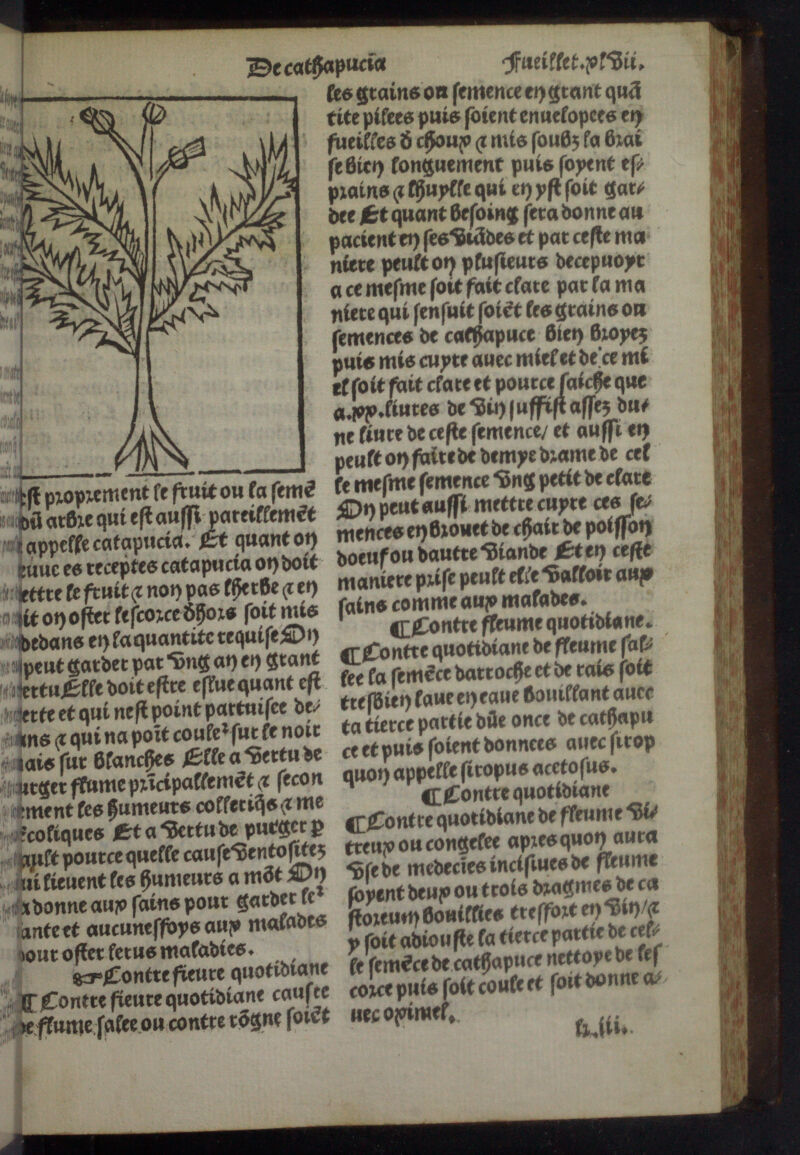 De cathapucia
Fueillet.xlvii.
est proprement le fruit ou la semẽ
dũ arbre qui est aussi pareillemẽt
appelle catapucia. Et quant on
es receptes catapucia on doit
mettre le fruit ⁊ non pas lherbe ⁊ en
on oster lescorce dhors soit mis
dedans en la quantite requise On
peut garder par vng an en grant
vertu Elle doit estre eslue quant est
verte et qui nest point partuisee de⸗
dans ⁊ qui na poĩt coulᷤ sur le noir
mais sur blanches Elle a vertu de
purger flume prĩcipallemẽt ⁊ secon
ment les humeurs colleriq̃s ⁊ me
coliques Et a vertu de purger p
hault pource quelle cause ventositez
qui lieuent les humeurs a mõt On
donne aux sains pour garder
sante et aucuneffoys aux malades
pour oster leurs maladies.
☞Contre fieure quotidiane
¶ Contre fieure quotidiane causee
de flume salee ou contre rõgne soiẽt
les grains ou semence en grant quã
tite pilees puis soient enuelopees en
fueilles d̾ choux ⁊ mis soubz la brai
se bien longuement puis soyent es⸗
prains ⁊ lhuylle qui en yst soit gar⸗
dee Et quant besoing sera donne au
pacient en ses viãdes et par ceste ma
niere peult on plusieurs decepuoyr
a ce mesme soit fait clare par la ma
niere qui sensuit soiẽt les grains ou
semences de cathapuce bien broyez
puis mis cuyre auec miel et de ce mi
el soit fait clare et pource saiche que
a.xx.liures de vin suffist assez du⸗
ne liure de ceste semence/ et aussi en
peult on faire de demye drame de cel
le mesme semence vng petit de clare
On peut aussi mettre cuyre ces se⸗
mences en brouet de chair de poisson
doeuf ou dautre viande Et en ceste
maniere prise peult elle valloir aux
sains comme aux malades.
¶Contre fleume quotidiane.
¶Contre quotidiane de fleume sal⸗
lee la semẽce darroche et de rais soit
tresbien laue en eaue bouillant auec
la tierce partie dũe once de cathapu
ce et puis soient donnees auec sirop
quon appelle siropus acetosus.
¶Contre quotidiane
¶Contre quotidiane de fleume vi⸗
treux ou congelee apres quon aura
vse de medecĩes incisiues de fleume
soyent deux ou trois dragmes de ca
storeum bouillies tresfort en vin/⁊
y soit adiouste la tierce partie de cel⸗
le semẽce de cathapuce nettoye de les
corce puis soit coule et soit donne a⸗
uec oximel.
h.iii.